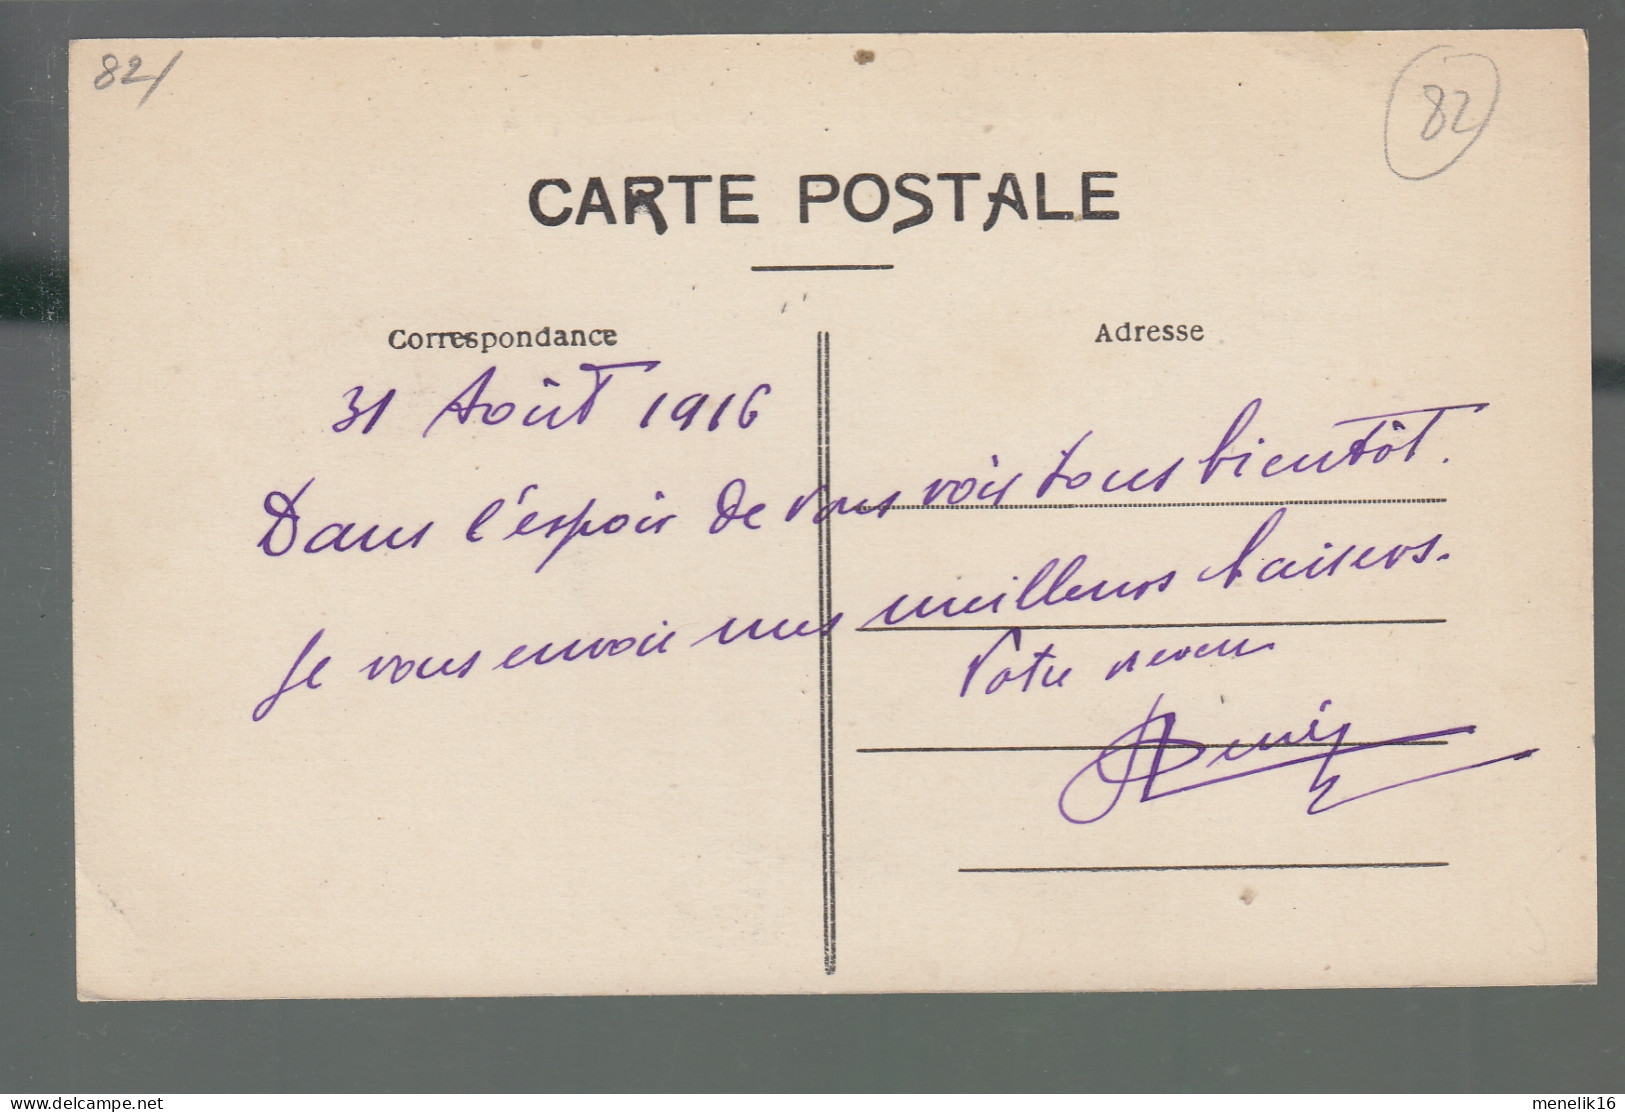 82/
82
CARTE POSTALE
Correspondance
Adresse
31 Août 1916
Dans l'espoir de vous voir tous bientôt.
Je vous envoie mes meilleurs baisers.
Votre neveu
Denis
menelik16
www.delcampe.net